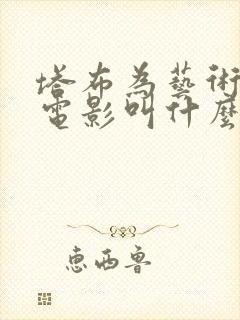 塔布為藝術
電影叫什麼
恵西魯